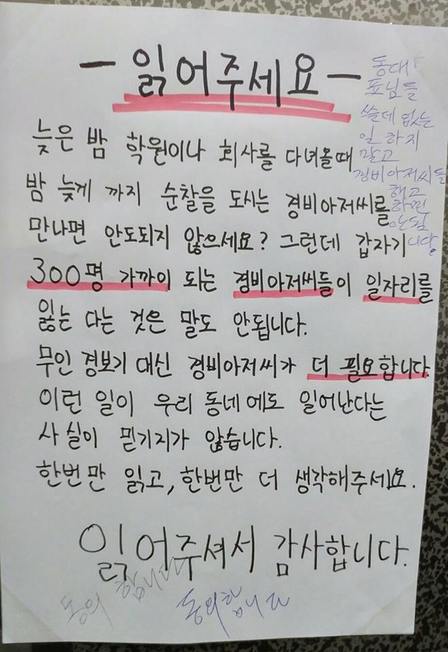 ー읽어주세요ー
늦은 밤 학원이나 회사를 다녀올때
밤 늦게 까지 순찰을 도시는 경비아저씨를
만나면 안도되지 않으세요? 그런데 갑자기
300명 가까이 되는 경비아저씨들이 일자리를
잃는 다는 것은 말도 안됩니다.
무인 경보기 대신 경비아저씨가 더 필요합니다
이런 일이 우리 동네에도 일어난다는
사실이 믿기지가 않습니다.
한번만 읽고, 한번만 더 생각해주세요.
읽어주셔서 감사합니다.
동대
표님들
쓸데 없는
일 하지
말고
경비아저씨들
해고
하면
안됩
니다
동의 합니다
동의합니다